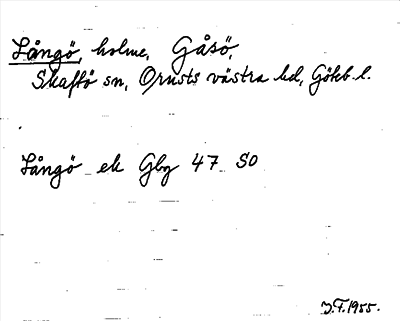 Långö, holme, Gåsö,
Skaftö sn, Orusts västra hd, Göteb. l.
Långö ek Gbg 47 SO
J.F. 1955.